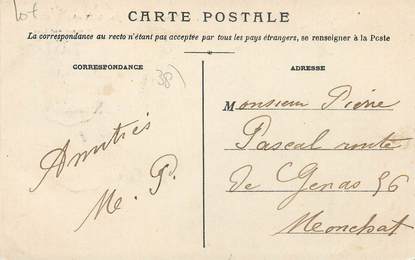 Lot
CARTE POSTALE
La correspondance au recto n'étant pas acceptée par tous les pays étrangers, se renseigner à la Poste
CORRESPONDANCE
38)
Amitiés
M. P.
ADRESSE
Monsieur Pierre
Pascal route
de Genas 56
Monchat